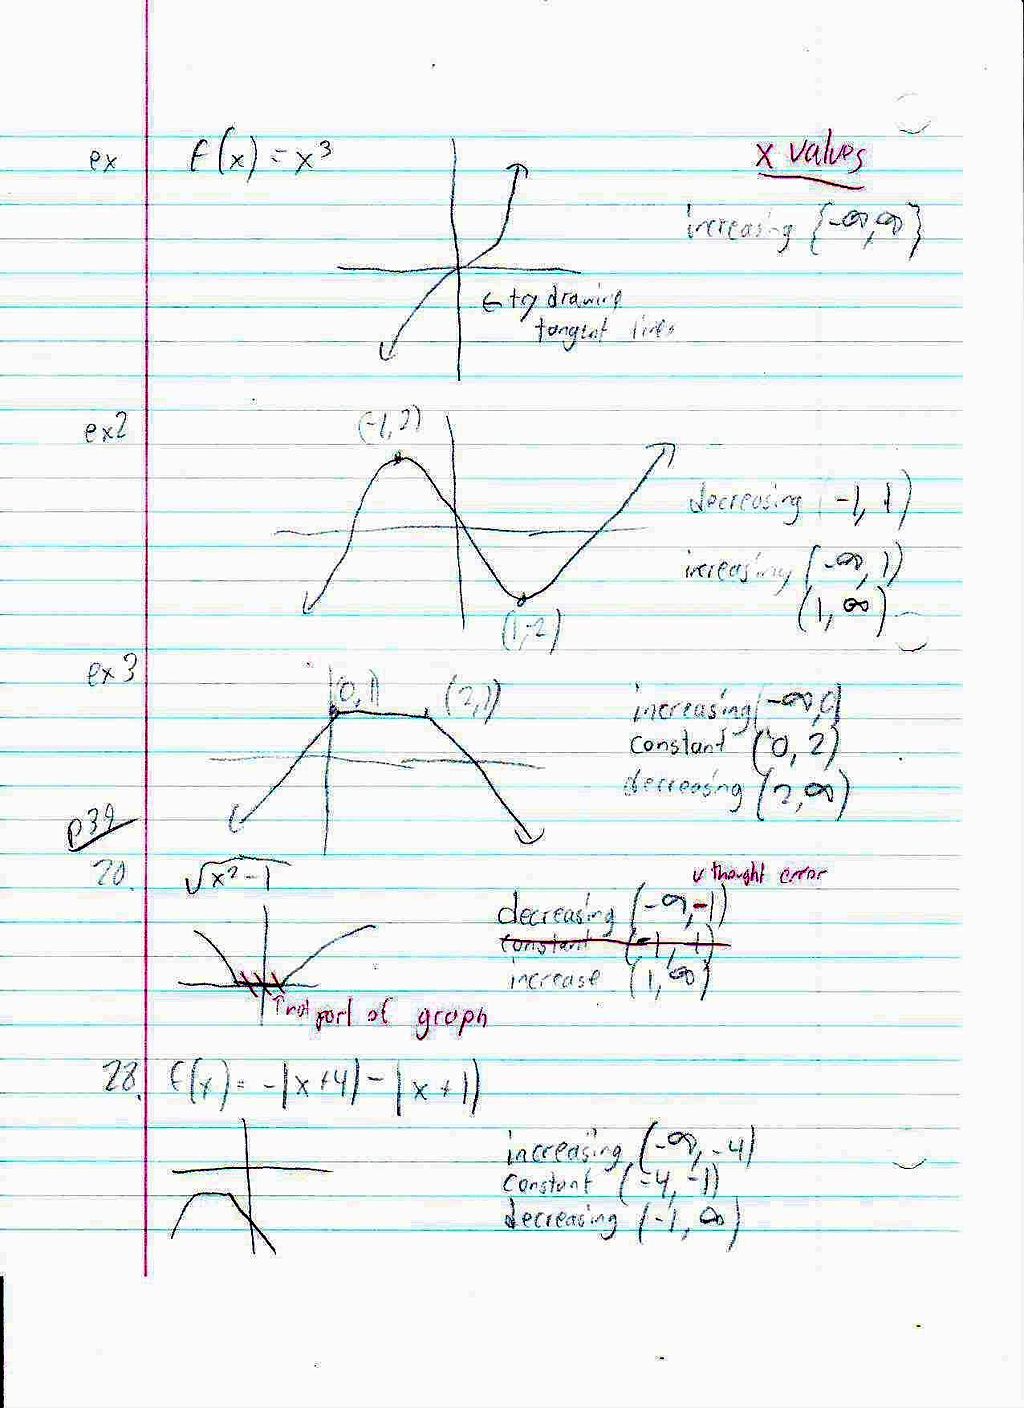 ex f(x) = x³ x values
increasing {-∞,∞}
← try drawing
tangent lines
ex2 (-1,2)
decreasing (-1, 1)
increasing (-∞, 1)
(1, ∞)
(1,-2)
ex 3 (0,1) (2,1) increasing (-∞,0)
constant (0, 2)
decreasing (2,∞)
p39
20. √x²-1 ↓ thought error
decreasing (-∞,-1)
constant (-1, 1)
increase (1,∞)
↑ not part of graph
28. f(x) = -|x+4| - |x+1|
increasing (-∞, -4)
constant (-4, -1)
decreasing (-1, ∞)